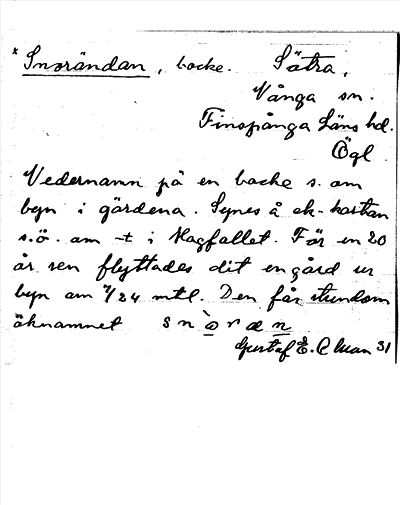 * Snorändan, backe. Sätra,
Vånga sn.
Finspånga Läns hd.
Ögl.
Vedernamn på en backe s. om
byn i gärdena. Synes å ek-kartan
s.ö. om -t i Hagfallet. För en 20
år sen flyttades dit en gård ur
byn om 7/24 mtl. Den får stundom
öknamnet snòran
Gustaf E.
31